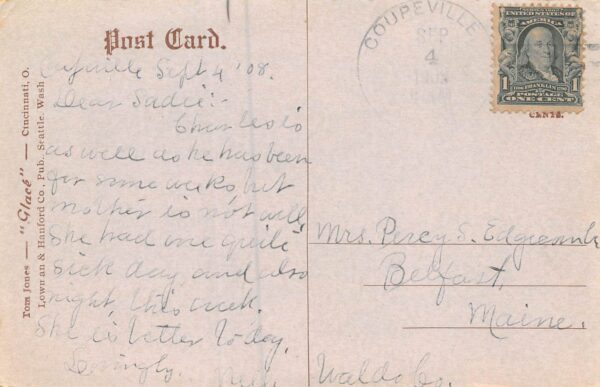 Post Card.
Sept 4 '08.
Dear Sadie:-
Charles is
as well as he has been
for some weeks but
mother is not well
She had one quite
sick day and also
night, this week.
She is better to-day.
Lovingly.
Tom Jones — "Glacé" — Cincinnati, O.
Lowman & Hanford Co., Pub., Seattle, Wash
COUPEVILLE
SEP
4
UNITED STATES
OF AMERICA
1 1
FRANKLIN
POSTAGE
ONE CENT
CENTS.
Mrs. Percy S. Edgecomb
Belfast,
Maine.
Waldo Co.